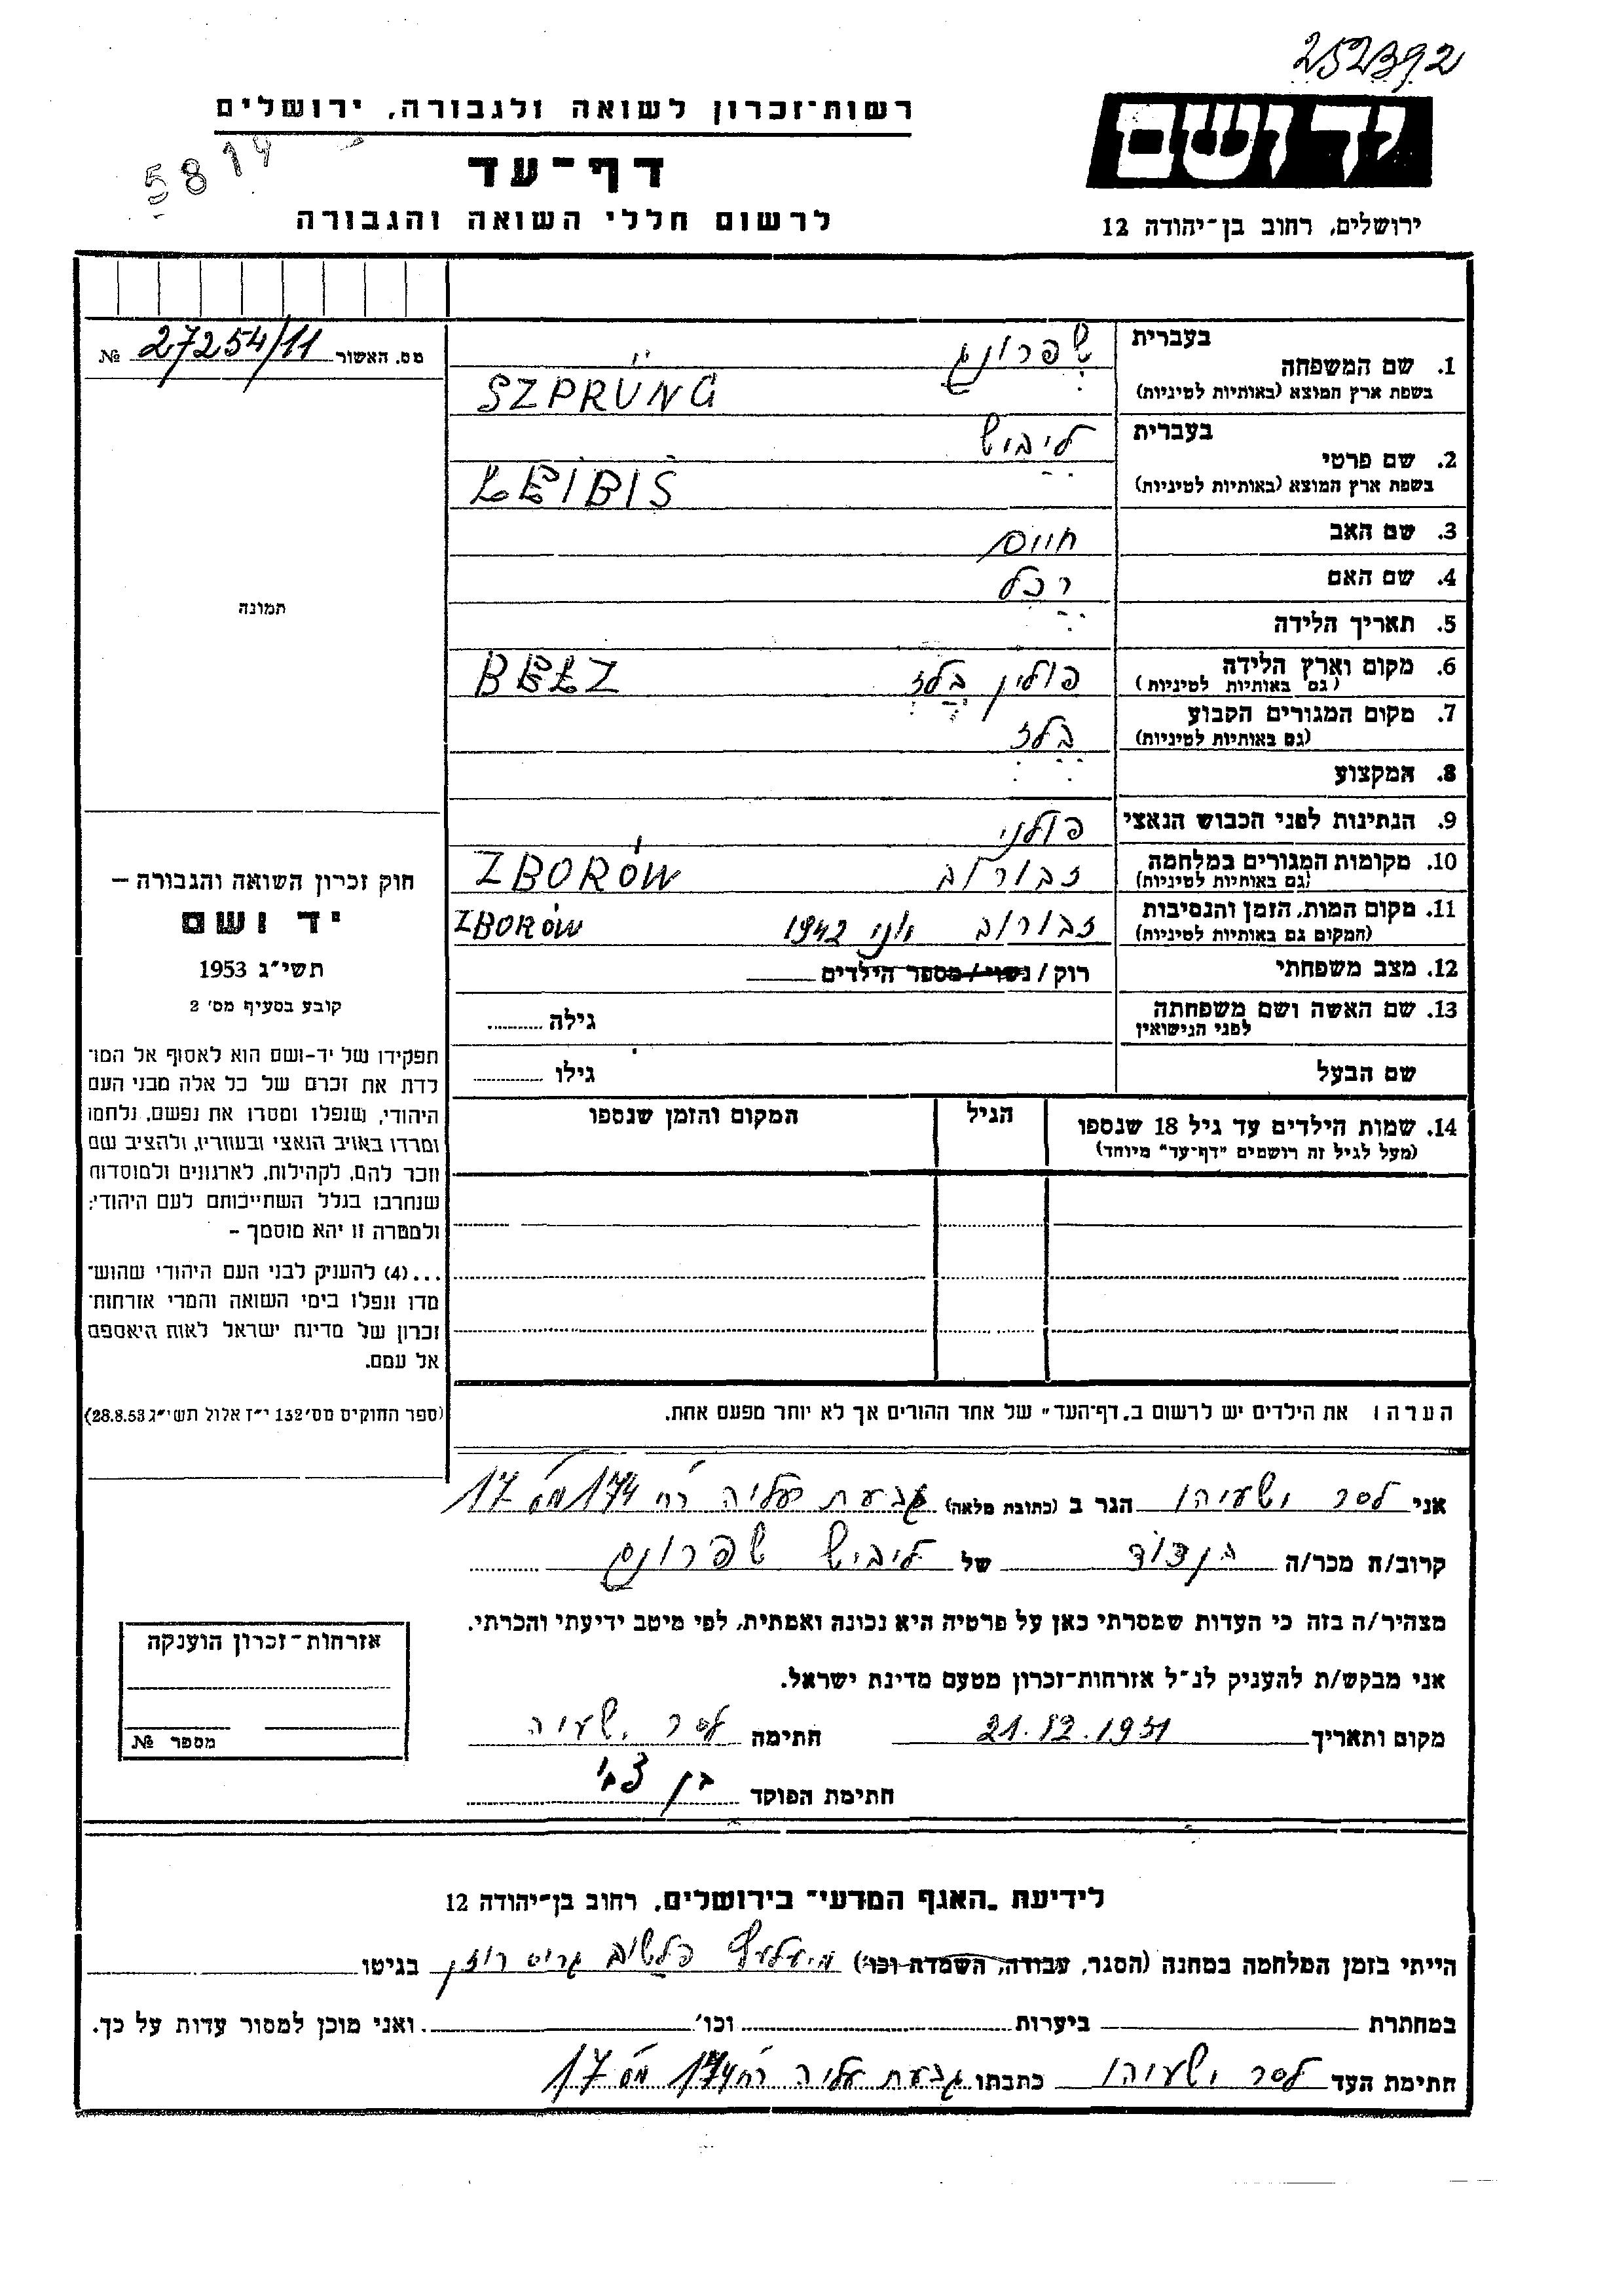 252392
רשות־זכרון לשואה ולגבורה, ירושלים
יד ושם
5814
דף־עד
לרשום חללי השואה והגבורה
ירושלים, רחוב בן־יהודה 12
מס. האשור № 27254/11
תמונה
חוק זכרון השואה והגבורה –
יד ושם
תשי״ג 1953
קובע בסעיף מס׳ 2
תפקידו של יד-ושם הוא לאסוף אל המו־
לדת את זכרם של כל אלה מבני העם
היהודי, שנפלו ומסרו את נפשם, נלחמו
ומרדו באויב הנאצי ובעוזריו, ולהציב שם
וזכר להם, לקהילות, לארגונים ולמוסדות
שנחרבו בגלל השתייכותם לעם היהודי;
ולמטרה זו יהא מוסמך –
...(4) להעניק לבני העם היהודי שהוש־
מדו ונפלו בימי השואה והמרי אזרחות־
זכרון של מדינת ישראל לאות היאספם
אל עמם.
(ספר החוקים מס׳ 132 י״ז אלול תשי״ג 28.8.53)
1. שם המשפחה בעברית שפרונג
בשפת ארץ המוצא (באותיות לטיניות) SZPRUNG
2. שם פרטי בעברית ליביש
בשפת ארץ המוצא (באותיות לטיניות) LEIBIS
3. שם האב חיים
4. שם האם רכל
5. תאריך הלידה
6. מקום וארץ הלידה פולין בלז BEŁZ
(גם באותיות לטיניות)
7. מקום המגורים הקבוע בלז
(גם באותיות לטיניות)
8. המקצוע
9. הנתינות לפני הכבוש הנאצי פולני
10. מקומות המגורים במלחמה זבורוב ZBORÓW
(גם באותיות לטיניות)
11. מקום המות, הזמן והנסיבות זבורוב יוני 1942 ZBORÓW
(המקום גם באותיות לטיניות)
12. מצב משפחתי רוק / נשוי / מספר הילדים
13. שם האשה ושם משפחתה גילה
לפני הנישואין
שם הבעל גילו
14. שמות הילדים עד גיל 18 שנספו הגיל המקום והזמן שנספו
(מעל לגיל זה רושמים "דף־עד" מיוחד)
הערה: את הילדים יש לרשום ב„דף־העד" של אחד ההורים אך לא יותר מפעם אחת.
אני לסר ישעיהו הגר ב (כתובת מלאה) גבעת עליה רח 174 מס 17
קרוב/ה מכר/ה בן דוד של ליביש שפרונג
מצהיר/ה בזה כי העדות שמסרתי כאן על פרטיה היא נכונה ואמתית, לפי מיטב ידיעתי והכרתי.
אני מבקש/ת להעניק לנ״ל אזרחות־זכרון מטעם מדינת ישראל.
מקום ותאריך 21.12.1951 חתימה לסר ישעיה
חתימת הפוקד בן צבי
אזרחות־זכרון הוענקה
מספר №
לידיעת „האגף המדעי" בירושלים, רחוב בן־יהודה 12
הייתי בזמן המלחמה במחנה (הסגר, עבודה, השמדה וכו׳) פלשוב גרוס רוזן בגיטו
במחתרת ביערות וכו׳ ואני מוכן למסור עדות על כך.
חתימת העד לסר ישעיהו כתבתו גבעת עליה רח 174 מס 17